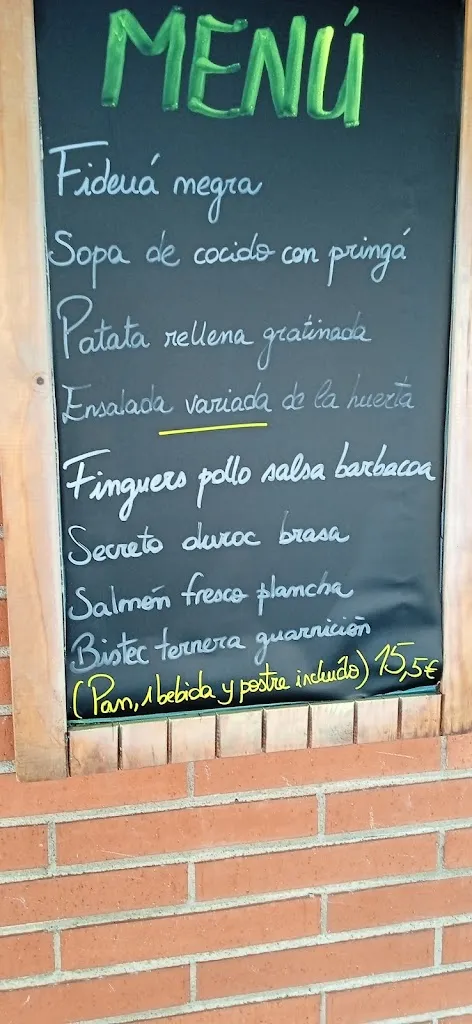 MENÚ
Fideuá negra
Sopa de cocido con pringá
Patata rellena gratinada
Ensalada variada de la huerta
Finguers pollo salsa barbacoa
Secreto duroc brasa
Salmón fresco plancha
Bistec ternera guarnición
(Pan, 1 bebida y postre incluído) 15,5€